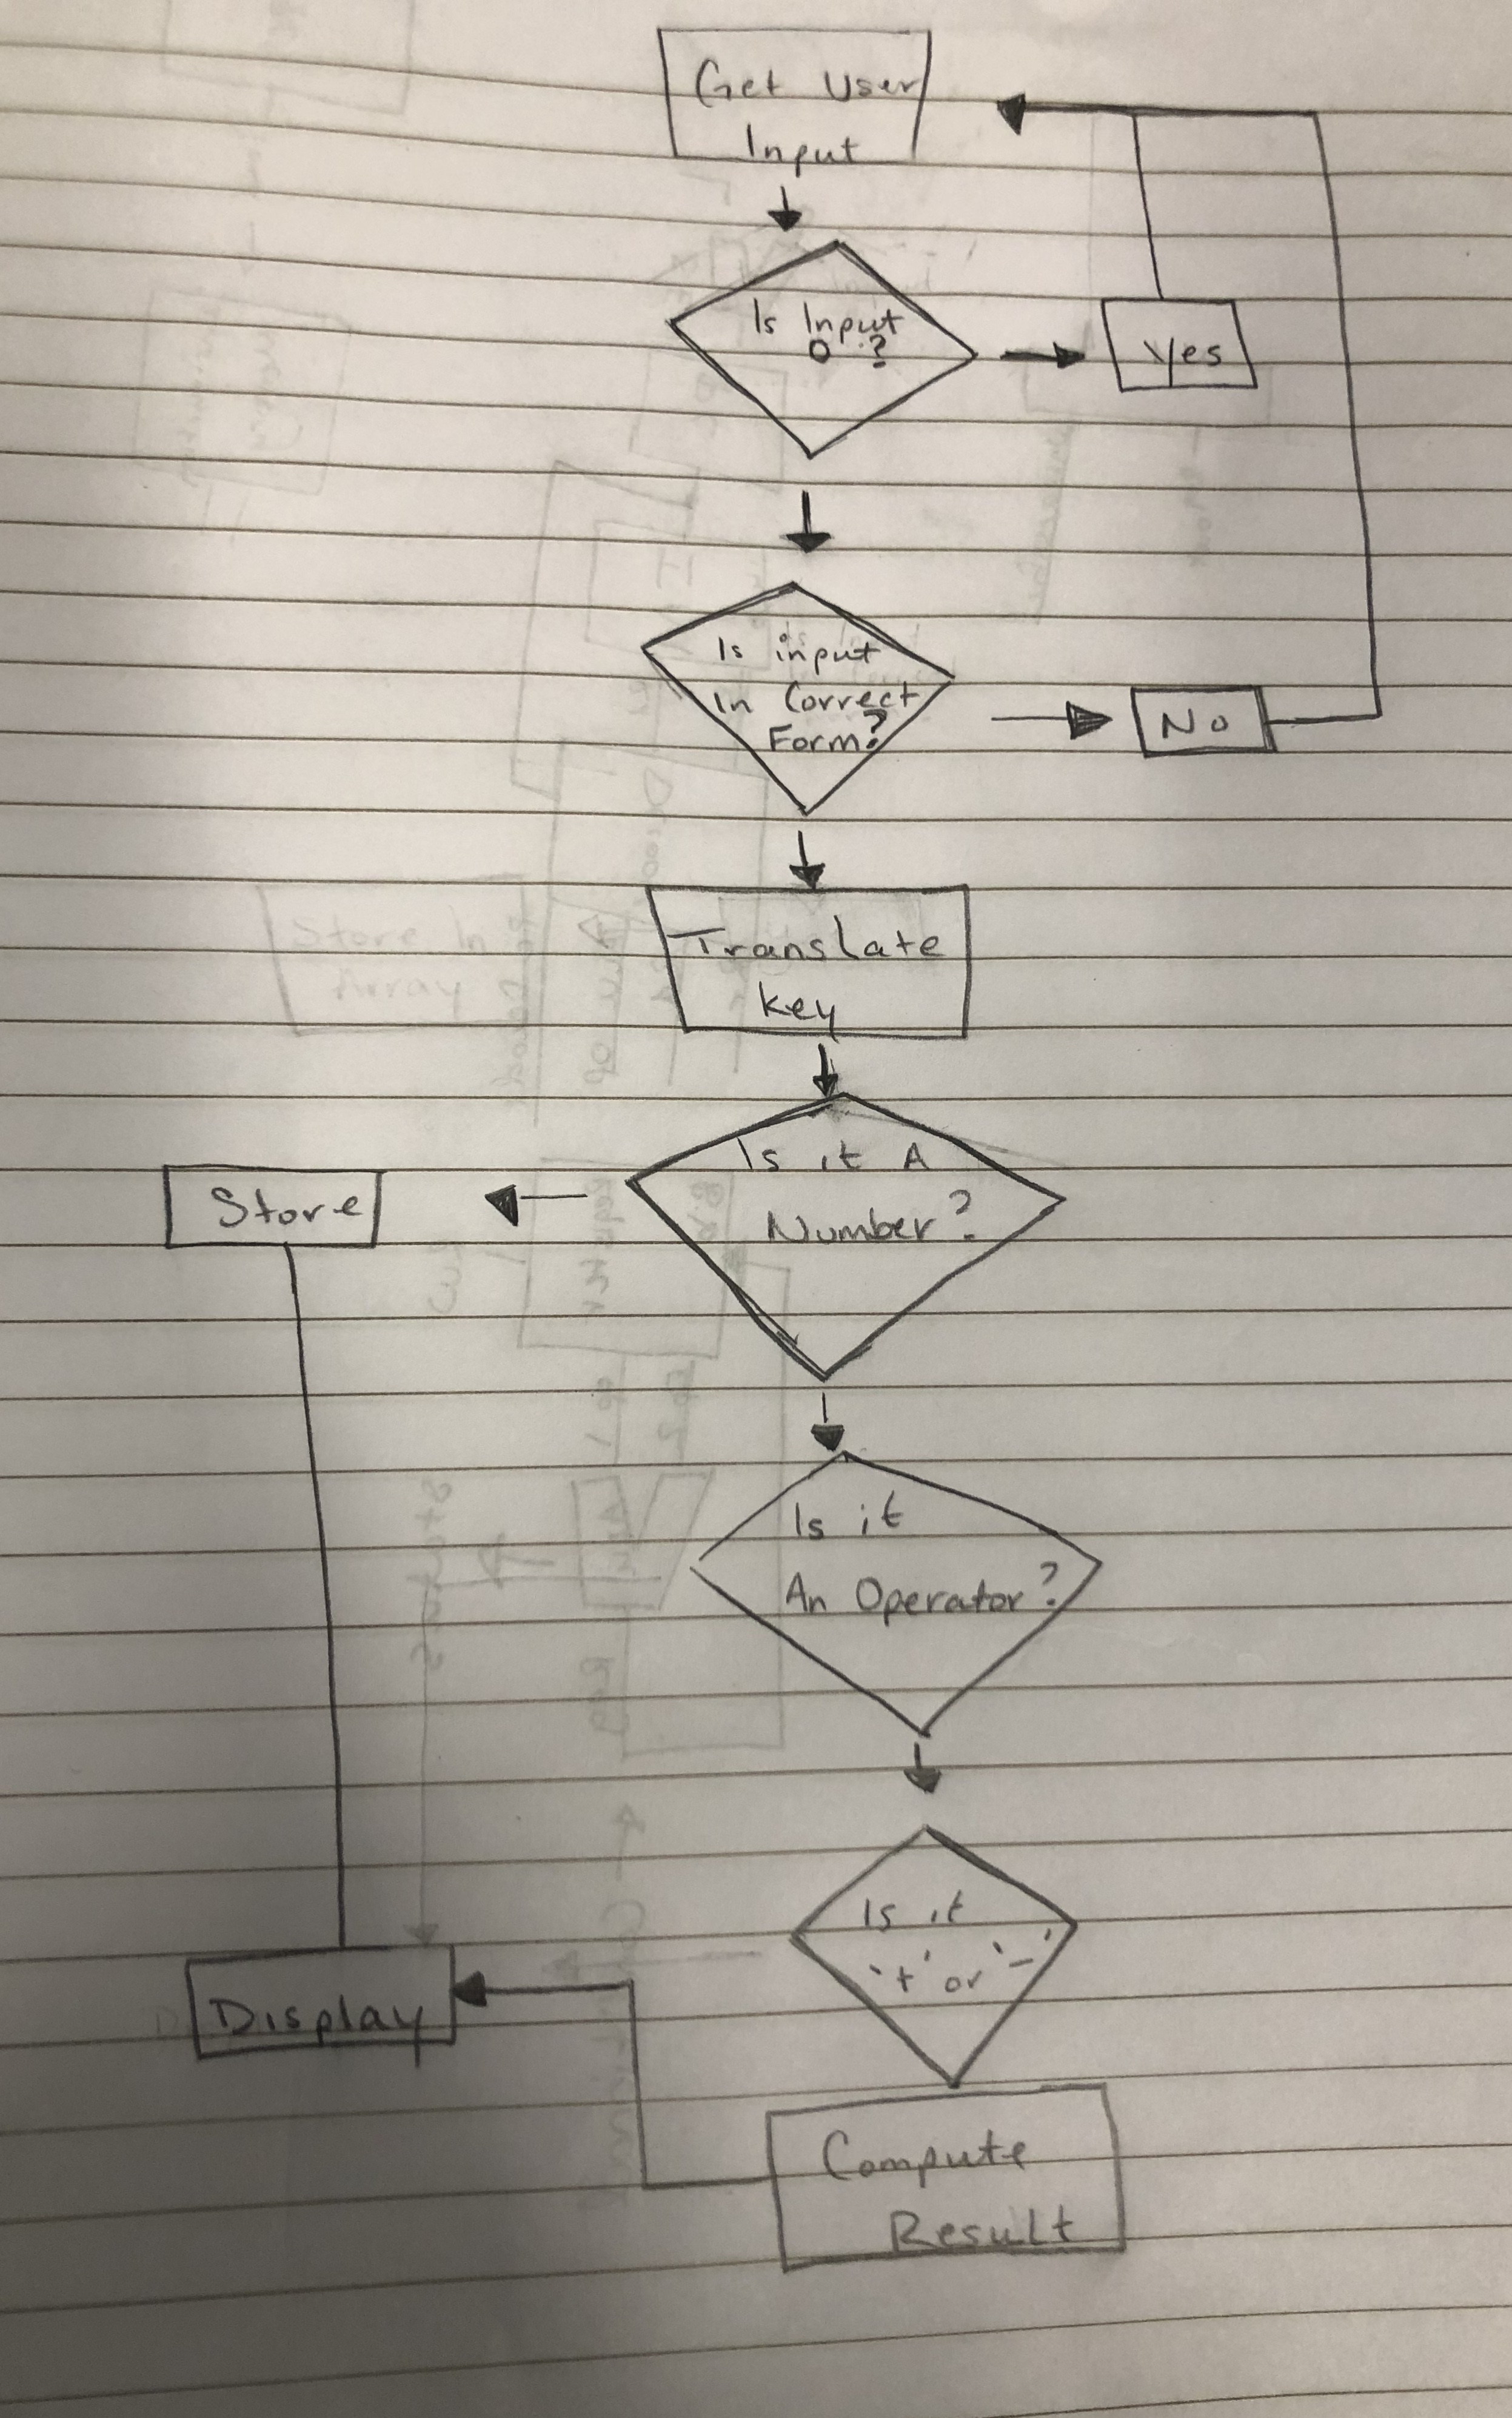 Get User
Input
Is Input
0 ?
Yes
Is input
In Correct
Form?
No
Translate
key
Store In
Array
Is it A
Number?
Store
Is it
An Operator?
Is it
'+' or '-'
Display
Compute
Result